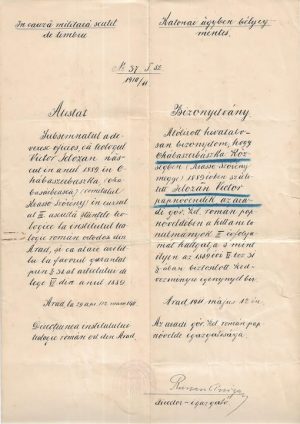 In cauză militară scutit
de timbru
Katonai ügyben bélyeg-
mentes.
№ 37
1910/11
Atestat
Subsemnatul ade-
veresc oficios, că teologul
Victor Selozan năs-
cut în anul 1889 în
Ohabaszerbaska (oha-
) comitatul
Krassó Szörény în cursul
al II ascultă științele teolo-
gice la institutul teo-
logic român ortodox din
Arad, și ca atare excelu
la favorul garantat
prin § al articolului de
lege VI din anul 1889.
Arad, la 29 apr. /12 maiu 1911.
Direcțiunea institutului
teologic român ort. din Arad
Bizonyítvány
Alólirott hivatalos-
an bizonyitom, hogy
Ohabaszerbaska köz-
ségben (Krassó Szörény-
megye) 1889 évben szüle-
tett Selozán Victor
papnövendék az ara-
di gör. kel. román pap-
növeldében a hittani ta-
nulmányok II évfolya-
mát hallgatja s mint
ilyen az 1889 évi VI tcz.
§-ában biztositott ked-
vezményre igényt bir.
Arad, 1911. május 12-én.
Az aradi gör. kel. román pap-
növelde igazgatósága.
igazgató